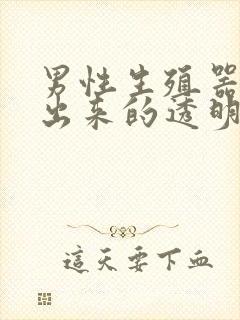 男性生殖器
出来的透明
這天要下血